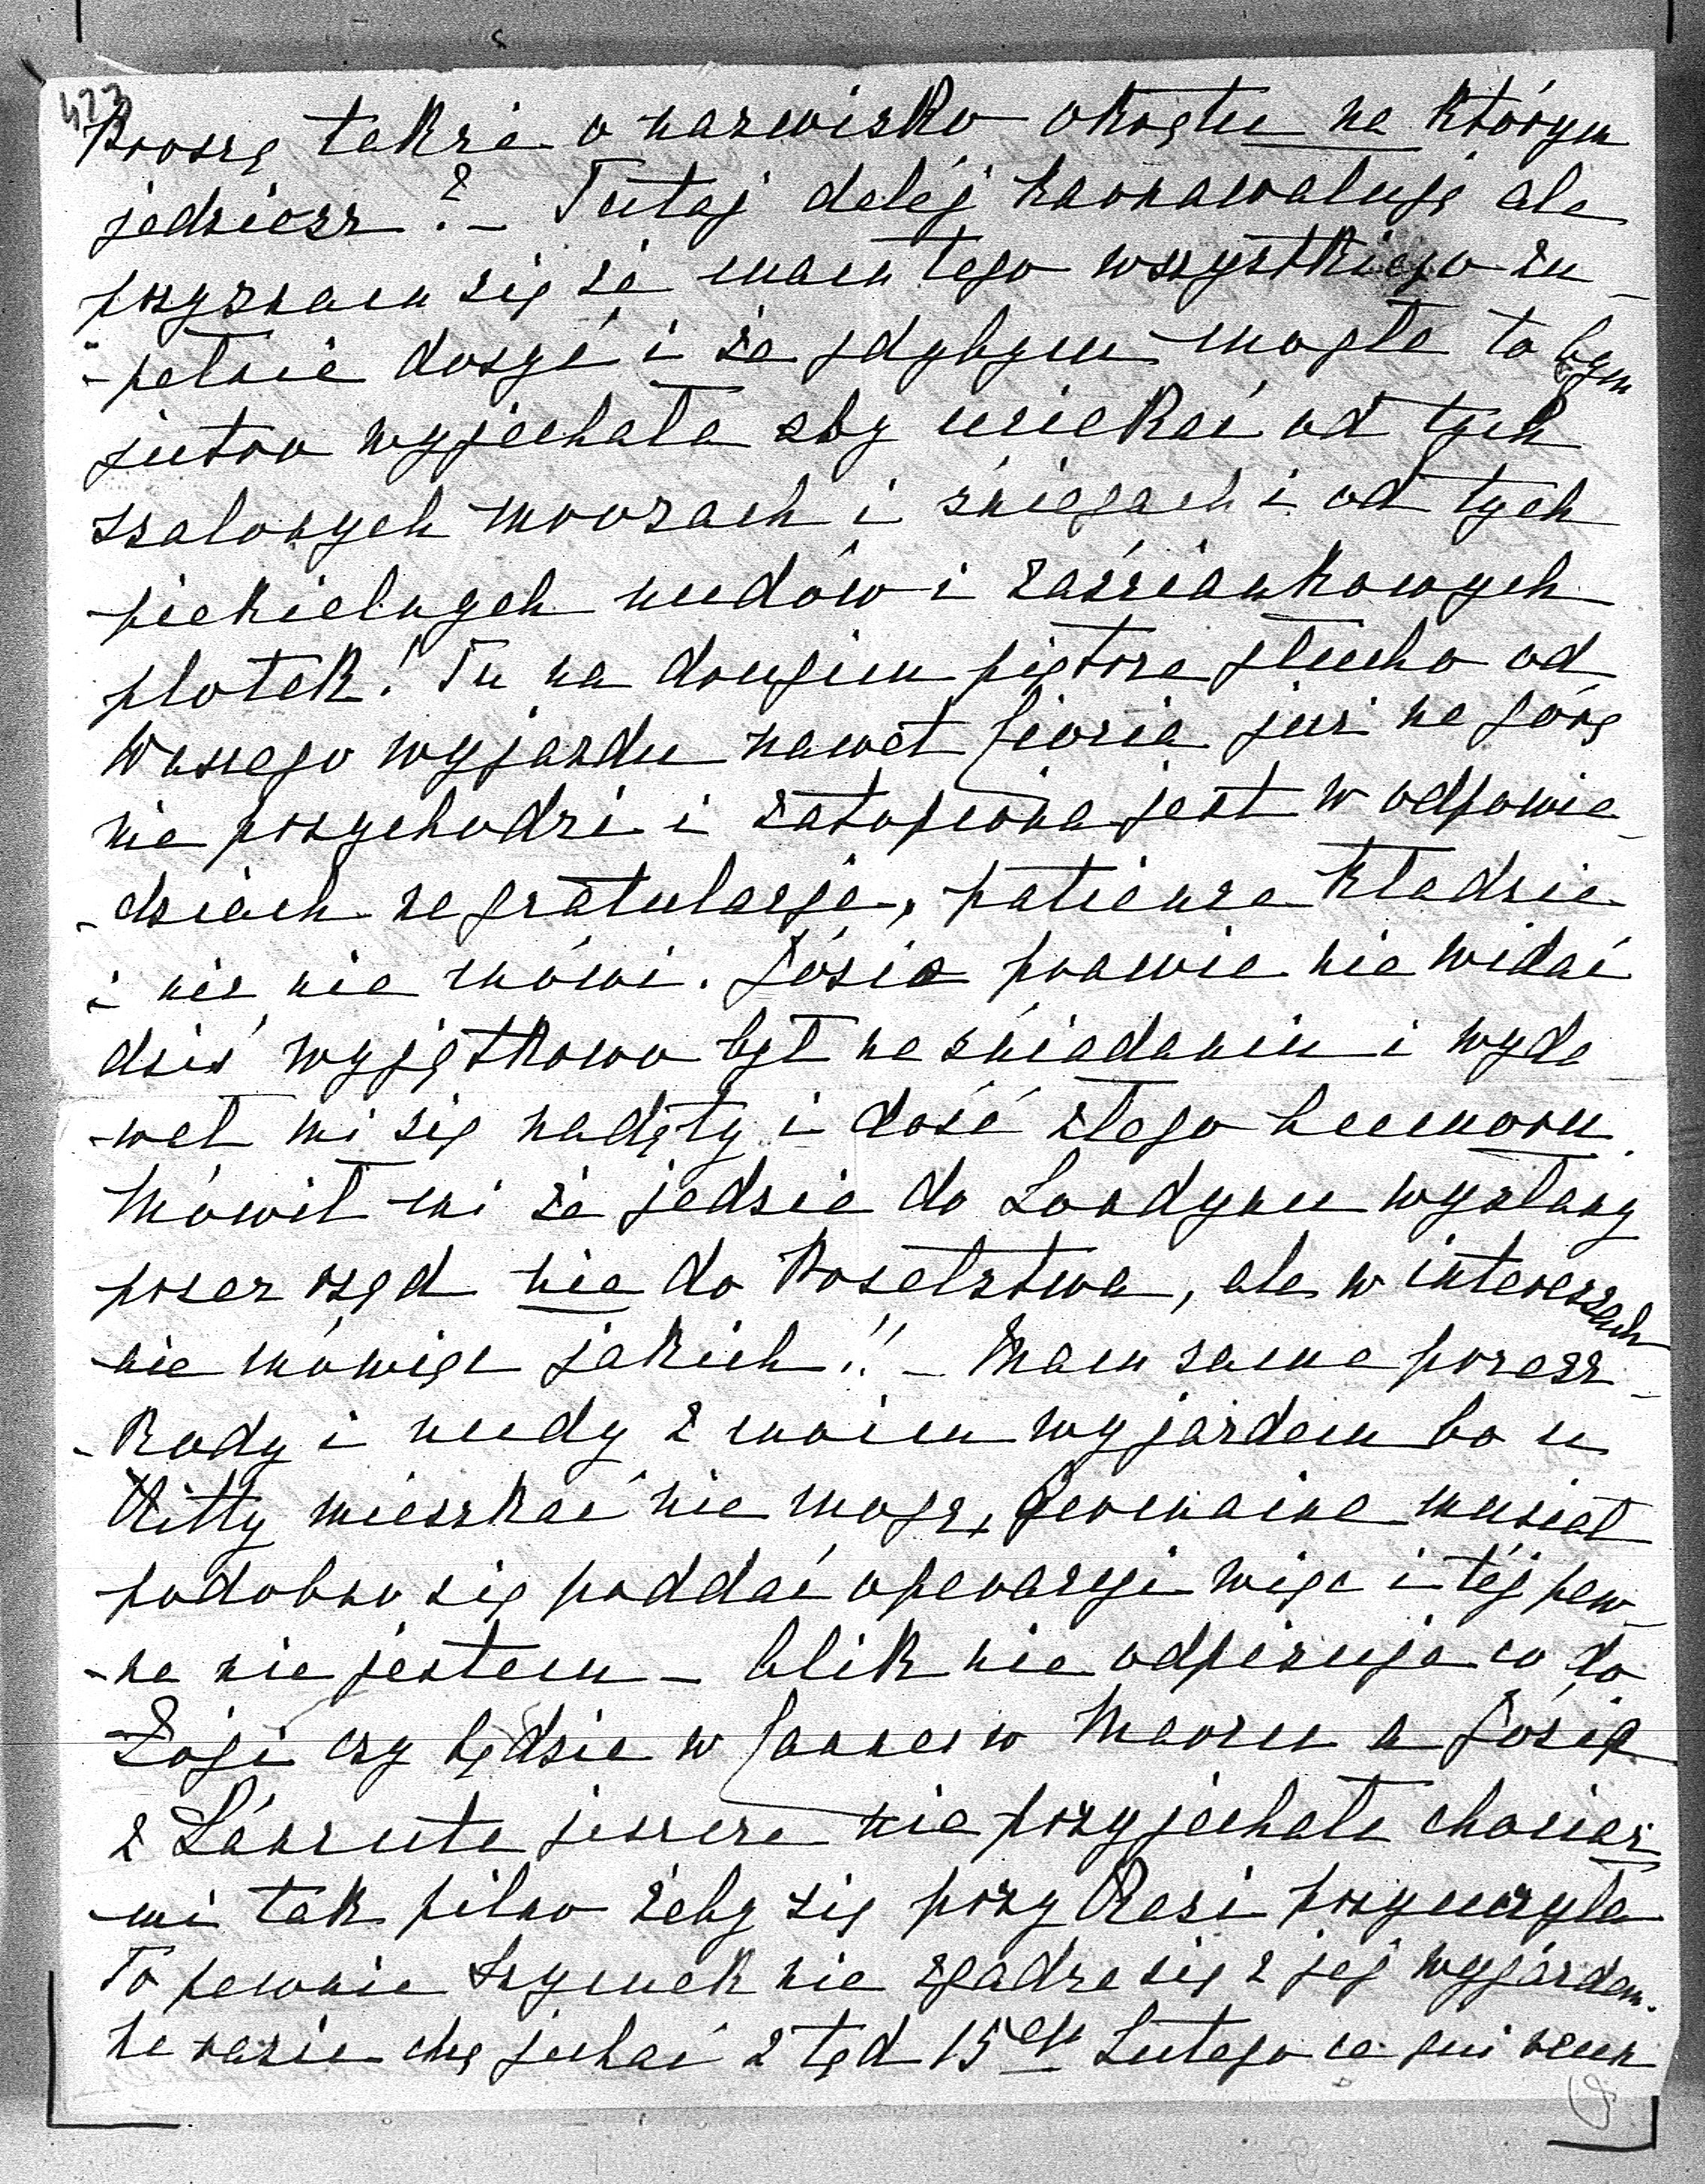 423
Proszę także o nazwisko okrętu na którym
jedziesz? – Tutaj daléj karnawałuję ale
przyznam się że mam tego wszystkiego zu-
-pełnie dosyć i że gdybym mogła to bym
jutro wyjechała aby uciekać od tych
szalonych mrozach i śniegach i od tych
piekielnych nudów i zaściankowych
plotek! Tu na drugim piętrze głucho od
Waszego wyjazdu nawet Ciocia już na górę
nie przychodzi i zatopiona jest w odpowie-
-dziach na gratulacje, patience kładzie
i nic nie mówi. Józia prawie nie widać
dziś wyjątkowo był na śniadaniu i wyda
-wał mi się nadęty i dość złego humoru.
Mówił mi że jedzie do Londynu wysłany
przez rząd nie do Poselstwa, ale w interesach
nie mówiąc jakich!! – Mam same przesz-
-kody i nudy z moim wyjazdem bo u
Kitty mieszkać nie mogę, Germaine musiał
podobno się poddać operacyi więc i téj pew-
-na nie jestem – Alik nie odpisuje co do
Łogi czy będzie w Cannes w Marcu a Józia
z Łańcuta jeszcze nie przyjechała chociaż
mi tak pilno żeby się przy Rasi przyuczyła
To pewnie Szymek nie zgadza się z jej wyjazdem.
Na razie chcę jechać ztąd 15go Lutego ce qui